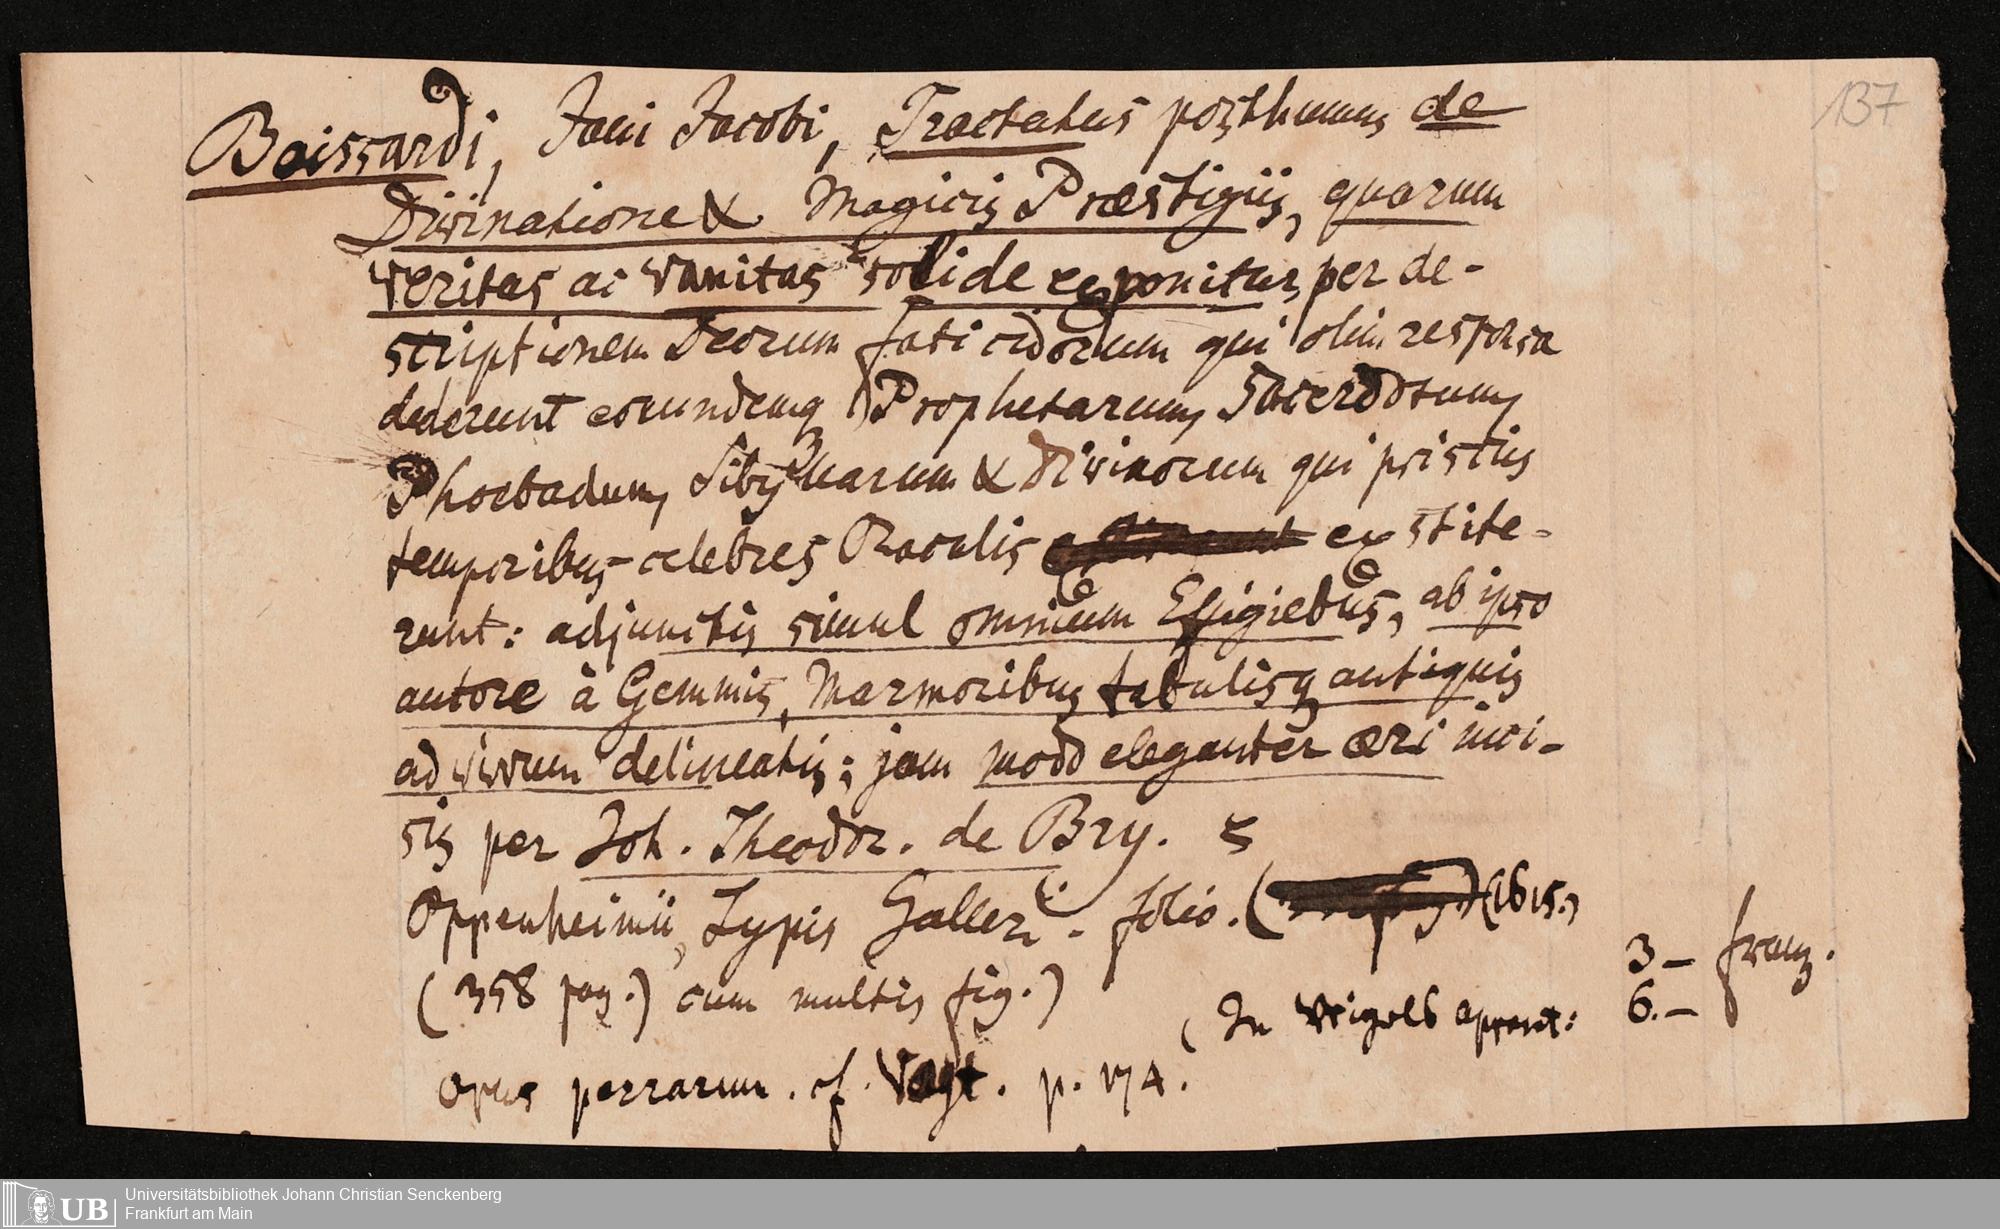 137
Boissardi, Jani Jacobi, Tractatus posthumus de
Divinatione & Magicis Præstigiis, quarum
veritas ac vanitas solide exponitur per de-
scriptionem Deorum fatidicorum qui olim responsa
dederunt eorundemq Prophetarum, Sacerdotum,
Phoebadum, Sibyllarum & Divinorum qui priscis
temporibus celebres Oraculis exstite-
runt: adjunctis simul omnium Effigiebus, ab ipso
autore à Gemmis, Marmoribus tabulisq antiquis
ad vivum delineatis; jam modò eleganter æri inci-
sis per Joh. Theodor. de Bry.
Oppenheimii, Typis Galleri. folio. (1615.)
(358 pag.) cum multis fig.)
3.— franz.
(In Weigels apparat: 6.—
Opus perrarum. cf. Vogt. p. 174.
Universitätsbibliothek Johann Christian Senckenberg
UB Frankfurt am Main